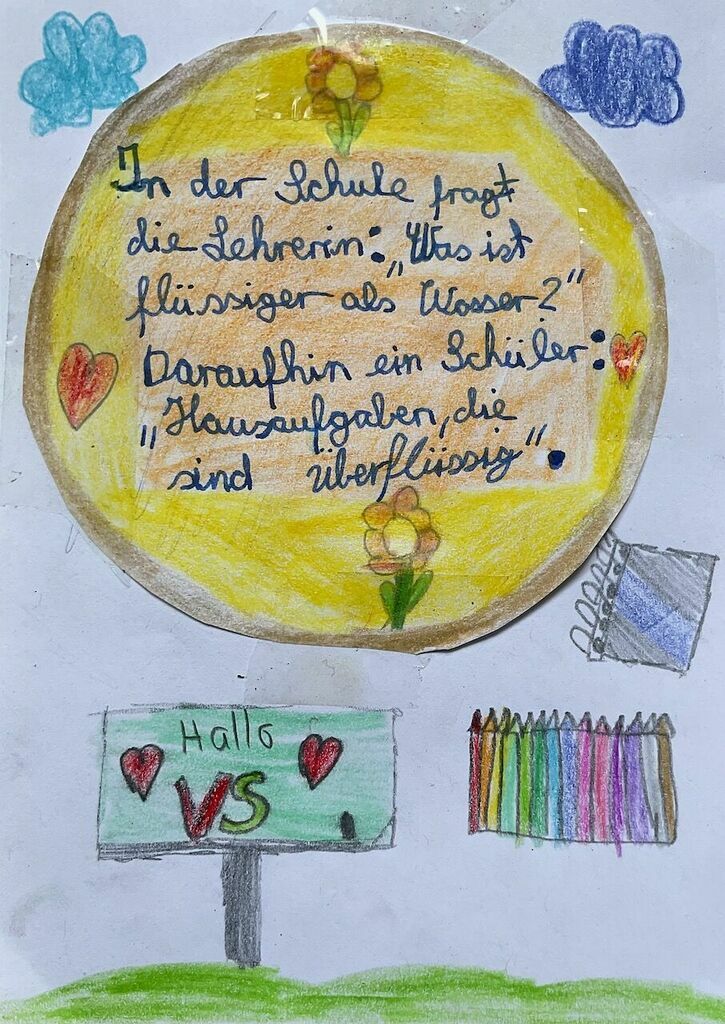 In der Schule fragt
die Lehrerin: „Was ist
flüssiger als Wasser?"
Daraufhin ein Schüler:
„Hausaufgaben, die
sind überflüssig".
Hallo
VS